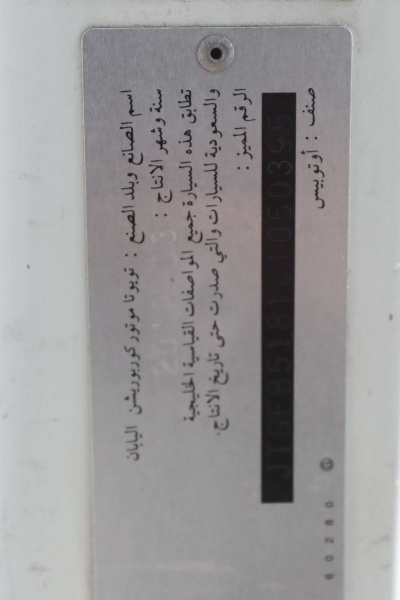 اسم الصانع وبلد الصنع : تويوتا موتور كوربوريشن اليابان
سنة وشهر الانتاج :
تطابق هذه السيارة جميع المواصفات القياسية الخليجية
والسعودية للسيارات والتي صدرت حتى تاريخ الانتاج.
الرقم المميز :
صنف : أوتوبيس
60280 Ⓣ